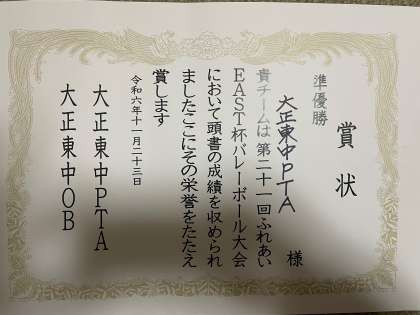 賞状
準優勝
大正東中PTA 様
貴チームは第二十一回ふれあい
EAST杯バレーボール大会
において頭書の成績を収められ
ましたここにその栄誉をたたえ
賞します
令和六年十一月二十三日
大正東中PTA
大正東中OB